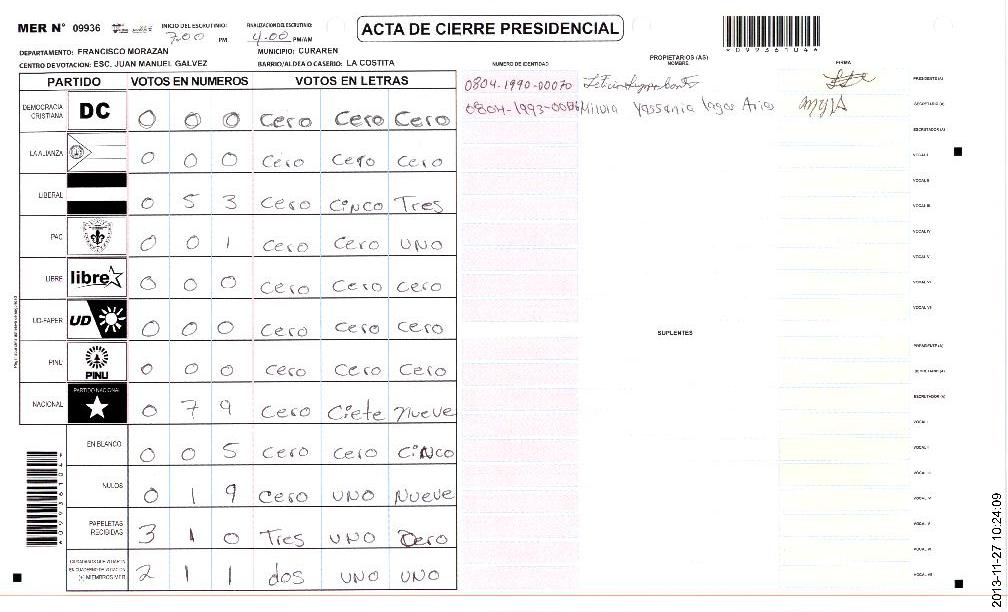 MER N° 09936
INICIO DEL ESCRUTINIO: 7:00 PM
FINALIZACION DEL ESCRUTINIO: 4.00 PM/AM
ACTA DE CIERRE PRESIDENCIAL
*09936104*
DEPARTAMENTO: FRANCISCO MORAZAN
MUNICIPIO: CURAREN
CENTRO DE VOTACION: ESC. JUAN MANUEL GALVEZ
BARRIO/ALDEA O CASERIO: LA COSTITA
PARTIDO VOTOS EN NUMEROS VOTOS EN LETRAS
DEMOCRACIA CRISTIANA DC 0 0 0 Cero Cero Cero
LA ALIANZA 0 0 0 Cero Cero Cero
LIBERAL 0 5 3 Cero Cinco Tres
PAC 0 0 1 Cero Cero UNO
LIBRE libre 0 0 0 Cero Cero Cero
UD-FAPER UD 0 0 0 Cero Cero Cero
PINU PINU 0 0 0 Cero Cero Cero
NACIONAL PARTIDO NACIONAL 0 7 9 Cero Ciete Nueve
EN BLANCO 0 0 5 Cero Cero CiNco
NULOS 0 1 9 Cero UNO Nueve
PAPELETAS RECIBIDAS 3 1 0 Tres UNO Cero
(+) MIEMBROS MER 2 1 1 dos UNO UNO
NUMERO DE IDENTIDAD
PROPIETARIOS (AS)
NOMBRE
FIRMA
0804-1990-00070 PRESIDENTE(A)
0804-1993- Yassenia Lagos SECRETARIO(A)
ESCRUTADOR(A)
VOCAL I
VOCAL II
VOCAL III
VOCAL IV
VOCAL V
VOCAL VI
VOCAL VII
SUPLENTES
PRESIDENTE(A)
SECRETARIO(A)
ESCRUTADOR(A)
VOCAL I
VOCAL II
VOCAL III
VOCAL IV
VOCAL V
VOCAL VI
VOCAL VII
2013-11-27 10:24:09